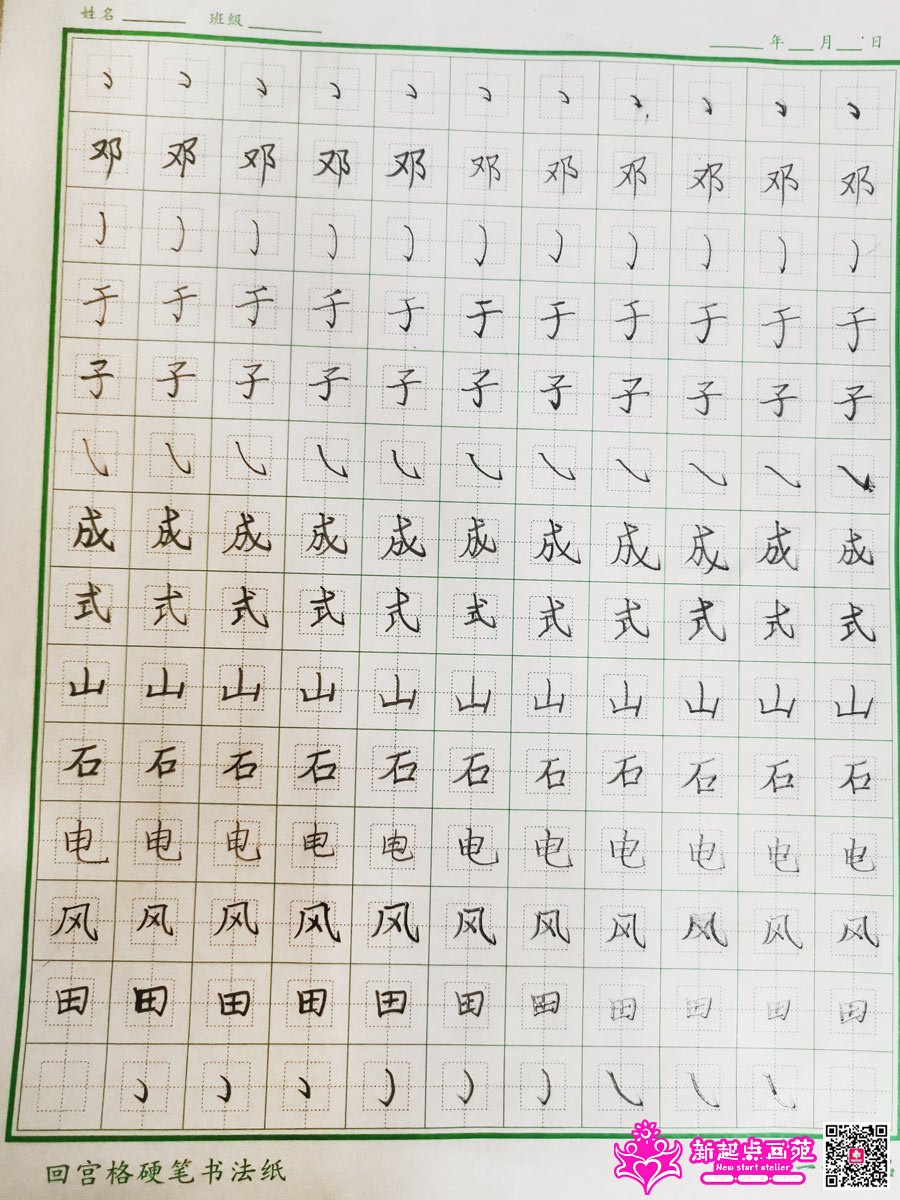 姓名 班级
年 月 日
邓 邓 邓 邓 邓 邓 邓 邓 邓 邓 邓
于 于 于 于 于 于 于 于 于 于 于
子 子 子 子 子 子 子 子 子 子 子
成 成 成 成 成 成 成 成 成 成 成
式 式 式 式 式 式 式 式 式 式 式
山 山 山 山 山 山 山 山 山 山 山
石 石 石 石 石 石 石 石 石 石 石
电 电 电 电 电 电 电 电 电 电 电
风 风 风 风 风 风 风 风 风 风 风
田 田 田 田 田 田 田 田 田 田 田
回宫格硬笔书法纸
新起点画苑
New start atelier